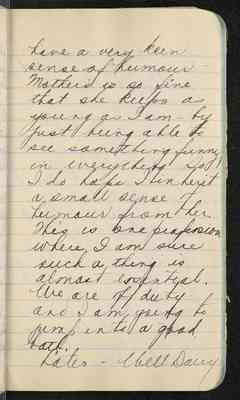 have a very keen
sense of humour
Mother's is so fine
that she keeps as
young as I am - by
just being able to
see something funny
in everything
I do hope I inherit
a small sense of
humour from her.
This is one profession
where I am sure
such a thing is
almost essential.
We are off duty
and I am going to
jump into a good
bath.
Later - Well Dairy